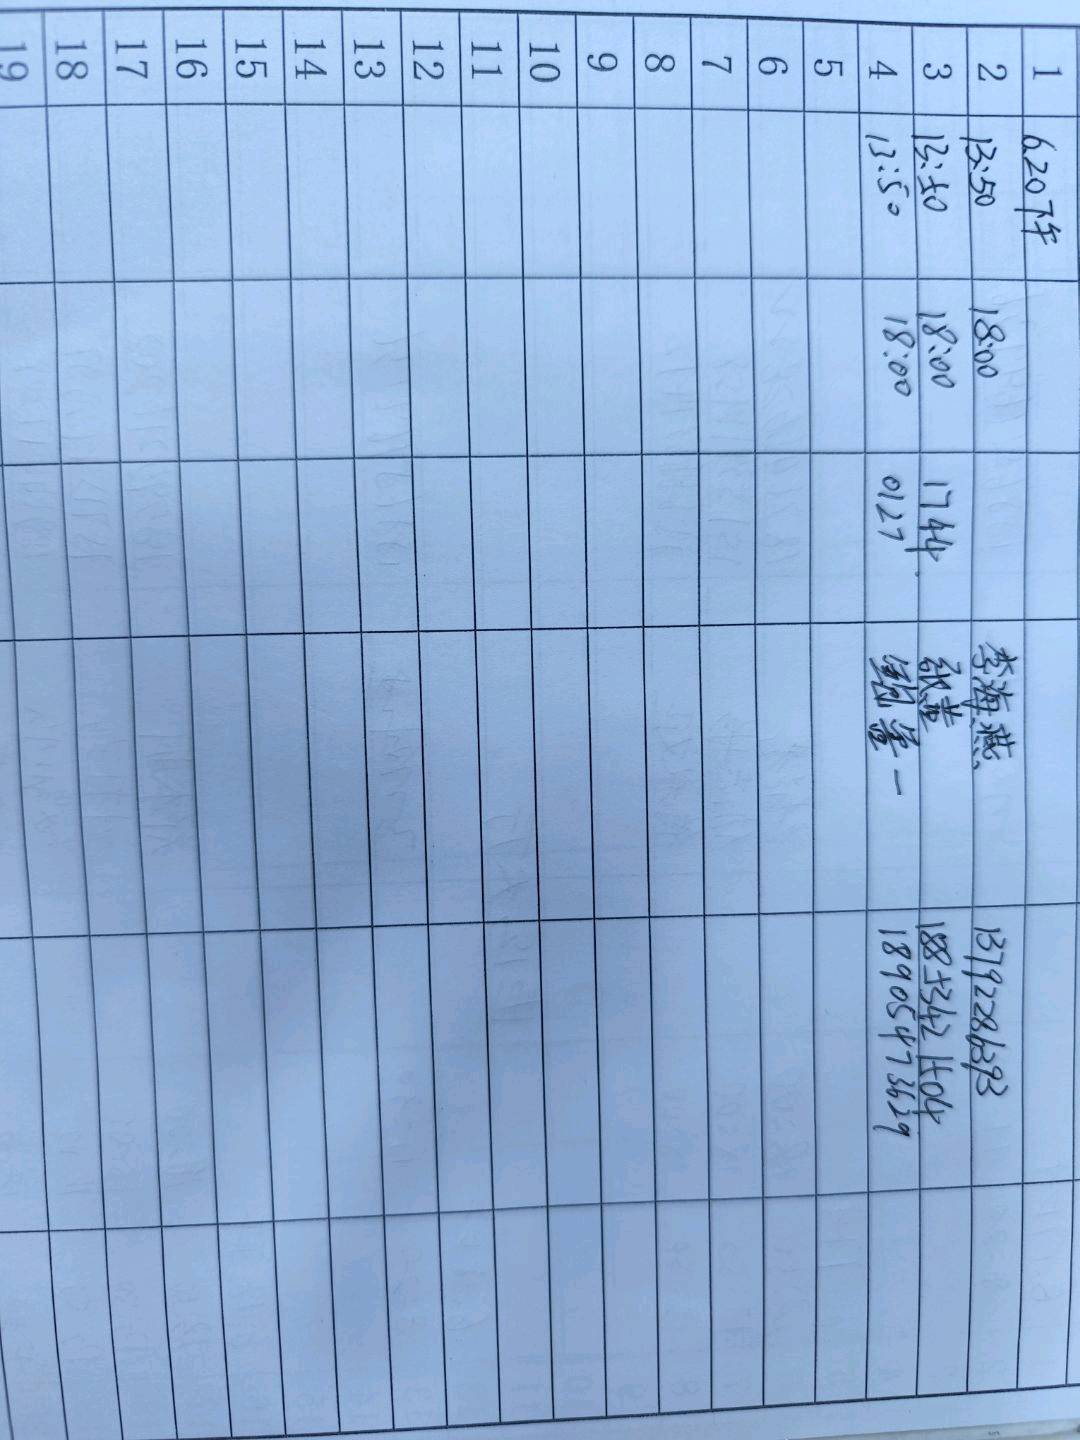 1 6.20下午
2 13:50 18:00 李海燕 13792286393
3 13:50 18:00 1744 18853421504
4 13:50 18:00 0127 18905473639
5
6
7
8
9
10
11
12
13
14
15
16
17
18
19